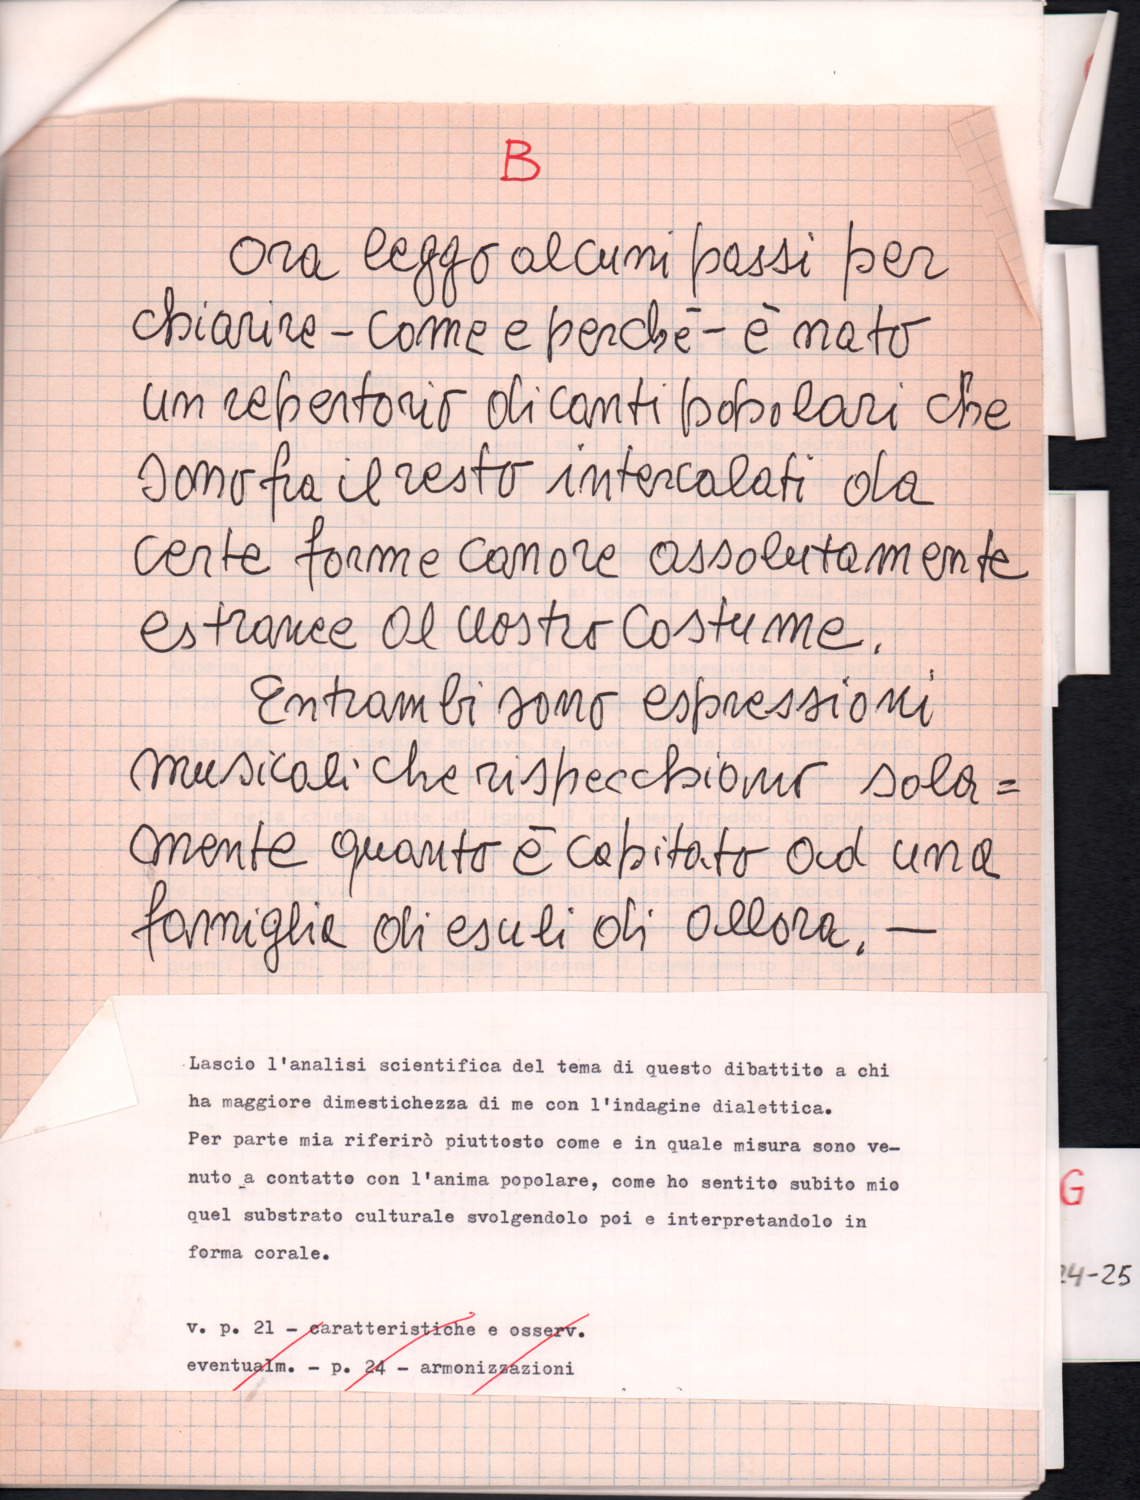 B
Ora leggo alcuni passi per
chiarire – come e perchè – è nato
un repertorio di canti popolari che
sono fra il resto intercalati da
certe forme canore assolutamente
estranee al nostro costume.
Entrambi sono espressioni
musicali che rispecchiano sola=
mente quanto è capitato ad una
famiglia di esuli di allora. —
Lascio l'analisi scientifica del tema di questo dibattito a chi
ha maggiore dimestichezza di me con l'indagine dialettica.
Per parte mia riferirò piuttosto come e in quale misura sono ve-
nuto a contatto con l'anima popolare, come ho sentito subito mio
quel substrato culturale svolgendolo poi e interpretandolo in
forma corale.
v. p. 21 – caratteristiche e osserv.
eventualm. – p. 24 – armonizzazioni
G
24-25